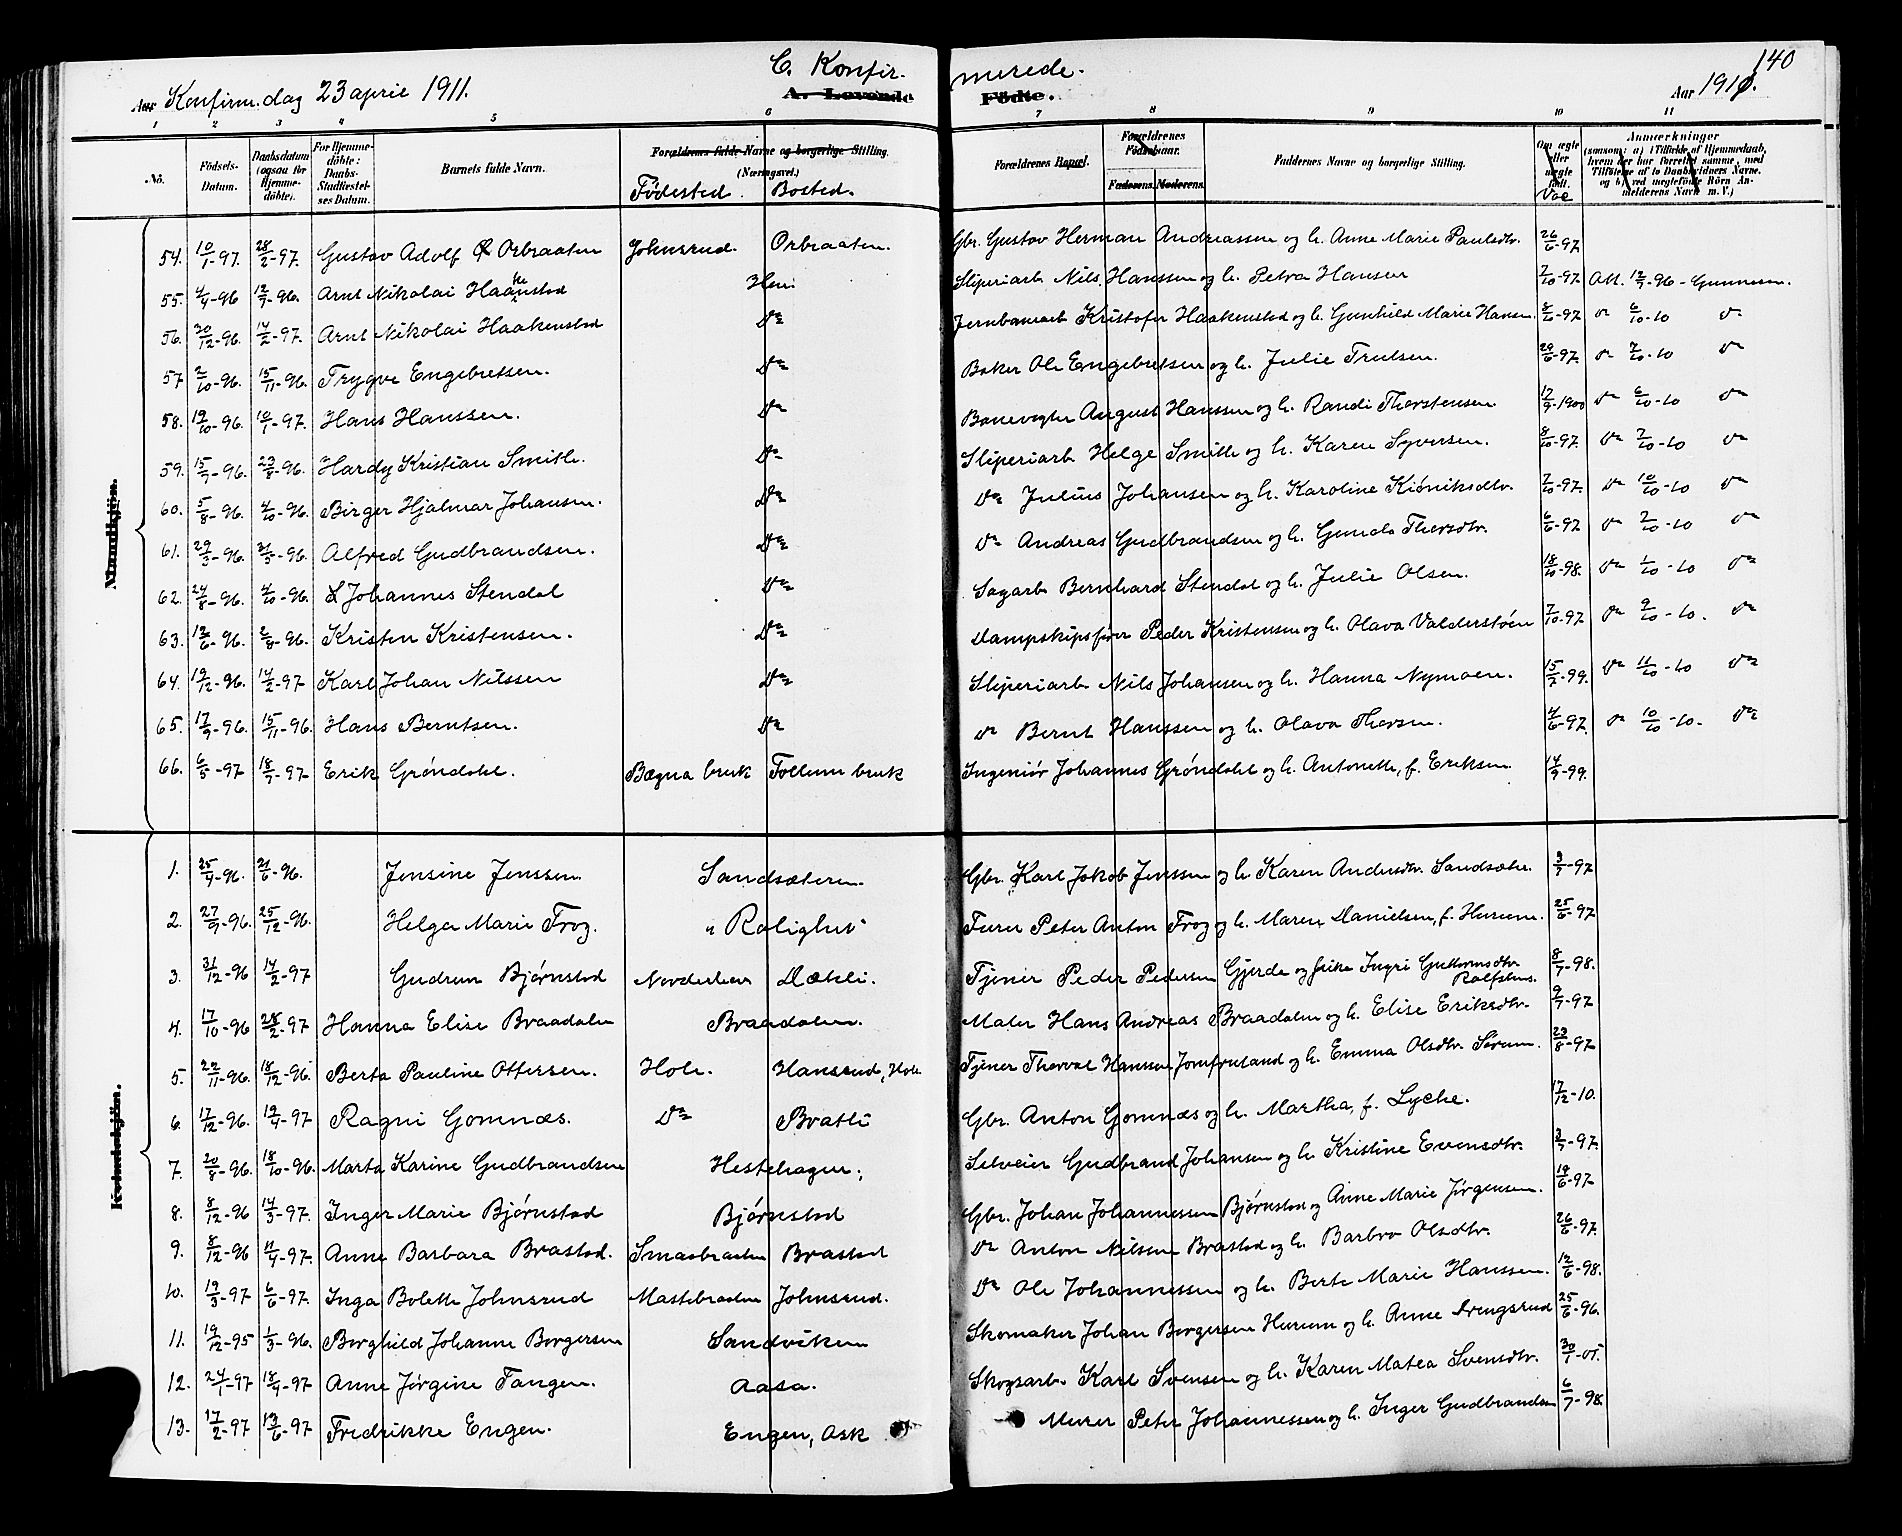 140
C. Konfirmerede.
A. Levende Fødte.
Aar Konfirm.dag 23 april 1911.
Aar 1910.
1 2 3 4 5 6 7 8 9 10 11
No. Födsels-Datum. Daabsdatum (ogsaa for Hjemmedöbte). For Hjemmedöbte: Daabs-Stadfæstelses Datum. Barnets fulde Navn. Forældrenes fulde Navne og borgerlige Stilling. (Næringsvei.) Födested. Bosted. Forældrenes Bopæl. Forældrenes Födselsaar. Faderens. Moderens. Faddernes Navne og borgerlige Stilling. Om ægte eller uægte født. Vac Anmærkninger (saasom: a) i Tilfælde af Hjemmedaab, hvem der har forrettet samme, med Tilföielse af to Daabsvidners Navne. og b) ved uægtefödte Börn Anmelderens Navn m. V.)
Mandkjön.
54. 10/1-97. 28/2-97. Gustav Adolf Orbraaten Johnsrud. Orbraaten. Gbr. Gustav Herman Andreassen og h. Anne Marie Paulsdtr. 26/6-97
55. 4/4-96 12/7-96. Arnt Nikolai Haanstad Hen. Sliperiarb Nils Hanssen og h. Petra Hansen 7/10-97. Att. 12/7-96 - Gunnesen.
56. 20/12-96. 14/2-97. Arnt Nikolai Haakenstad Do Jernbanearb Kristofer Haakenstad og h. Gunhild Marie Hansen. 8/10-97. do 6/10-10 do
57 2/10-96. 15/11-96. Trygve Engebretsen. Do Baker Ole Engebretsen og h. Julie Trulsen. 29/6-97. do 7/10-10 do
58. 19/10-96. 10/1-97. Hans Hanssen. Do Banevogter August Hanssen og h. Randi Thorstensen. 17/9-1900 do 6/10-10 do
59. 15/7-96. 23/8-96. Hardy Kristian Smith. Do Sliperiarb Helge Smith og h. Karen Syversen. 8/10-97. do 7/10-10 do
60. 5/8-96. 4/10-96. Birger Hjalmar Johansen. Do do Julius Johansen og h. Karoline Kiøniksdtr. 7/10-97. do 10/10-10 do
61. 29/3-96. 31/5-96. Alfred Gudbrandsen. Do do Andreas Gudbrandsen og h. Gunda Thorsdtr. 6/6-97 do 7/10-10 do
62. 24/8-96. 4/10-96. Johannes Stendal Do Sagarb Bernhard Stendal og h. Julie Olsen. 18/10-98. do 1/10-10 do
63. 12/6-96. 2/8-96. Kristen Kristensen. Do Dampskipsfører Peder Kristensen og h. Olava Valderstøen 7/10-97 do 9/10-10. do
64. 19/12-96. 14/2-97 Karl Johan Nilssen Do Sliperiarb Nils Johansen og h. Hanna Nymoen. 15/7-99. do 11/10-10 do
65. 17/9-96. 15/11-96. Hans Berntsen. Do do Bernt Hanssen og h. Olava Thorsen. 4/6-97. do 10/10-10. do
66. 6/5-97 18/7-97 Erik Grøndahl. Bægna bruk Follum bruk Ingeniør Johannes Grøndahl og h. Antonette, f. Eriksen 14/9-99.
Kvindekjön.
1. 25/4-96. 21/6-96. Jensine Jenssen. Sandsæteren. Gbr. Karl Jakob Jenssen og h. Karen Andersdtr. Sandsæter. 3/7-97
2. 27/9-96. 25/12-96. Helga Marie Frog. "Rolighet" Furer Peter Anton Frog og h. Maren Danielsen, f. Hurum. 25/6-97
3. 31/12-96 14/2-97 Gudrun Bjørnstad Norderhov Dækli. Tjener Peder Pedersen Gjerde og pike Ingri Guttormsdtr. Rolfshus. 8/7-98.
4. 17/10-96 28/2-97 Hanna Elise Braadalen Braadalen. Maler Hans Andreas Braadalen og h. Elise Eriksdtr. 9/7-97
5. 22/11-96. 18/12-96. Berta Pauline Ottersen. Hole. Hansrud, Hole Tjener Thorval Hanssen Jomfruland og h. Emma Olsdtr. Sørum. 23/8-97
6. 17/12-96. 19/4-97 Ragni Gomnæs. Do Bratli Gbr. Anton Gomnæs og h. Martha, f. Lyche. 17/12-10.
7. 20/8-96. 18/10-96. Marta Karine Gudbrandsen Hestehagen. Selveier Gudbrand Johansen og h. Kristine Evensdtr. 3/7-97.
8. 8/12-96 14/3-97. Inger Marie Bjørnstad Bjørnstad Gbr. Johan Johannessen Bjørnstad og Anne Marie Jørgensen. 19/6-97
9. 8/12-96 11/4-97. Anne Barbara Brastad. Smaabraaten Brastad do Anton Nilsen Brastad og h. Barbro Olsdtr. 26/6-97.
10. 19/3-97 6/6-97. Inga Bolette Johnsrud Mastebraaten Johnsrud. Do Ole Johannessen og h. Berte Marie Hanssen. 12/6-98.
11. 19/12-95 1/3-96. Borghild Johanne Borgersen Sandviken Skomaker Johan Borgersen Hurum og h. Anne 25/6-96.
12. 24/1-97 18/4-97 Anne Jørgine Tangen. Aasa. Skogsarb. Karl Svensen og h. Karen Matea Svensdtr. 30/1-05.
13. 17/2-97 13/6-97 Fredrikke Engen. Engen, Ask Murer Peter Johannessen og h. Inger Gudbrandsen 6/7-98.